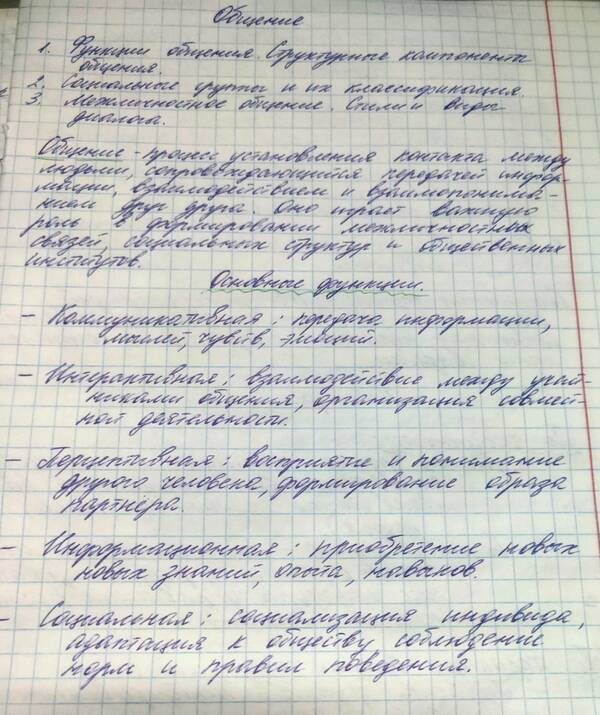 Общение
1. Функции общения. Структурные компоненты
общения.
2. Социальные группы и их классификация.
3. Межличностное общение. Стили и виды
диалога.
Общение - процесс установления контакта между
людьми, сопровождающийся передачей инфор-
мации, взаимодействием и взаимопонима-
нием друг друга. Оно играет важную
роль в формировании межличностных
связей, социальных структур и общественных
институтов.
Основные функции.
- Коммуникативная: передача информации,
мыслей, чувств, эмоций.
- Интерактивная: взаимодействие между участ-
никами общения, организация совмест-
ной деятельности.
- Перцептивная: восприятие и понимание
другого человека, формирование образа
партнёра.
- Информационная: приобретение новых
новых знаний, опыта, навыков.
- Социальная: социализация индивида,
адаптация к обществу соблюдение
норм и правил поведения.